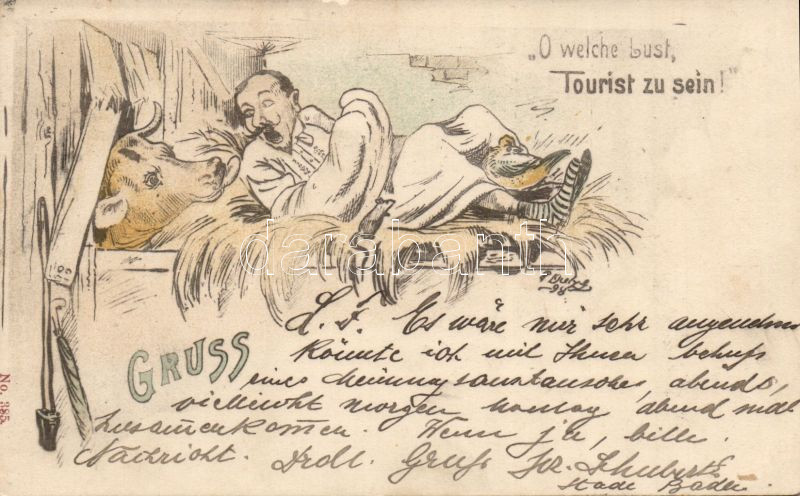 „O welche Lust,
Tourist zu sein!"
darabanth
98
GRUSS
L. F. Es wäre mir sehr angenehm
könnte ich mit Ihnen behufs
eines Meinungsaustausches, abends,
vielleicht morgen abend mal
zusammenkommen. Wenn ja, bitte
Nachricht. Frdl. Gruß Schubert
Stadt Baden
No. 385.